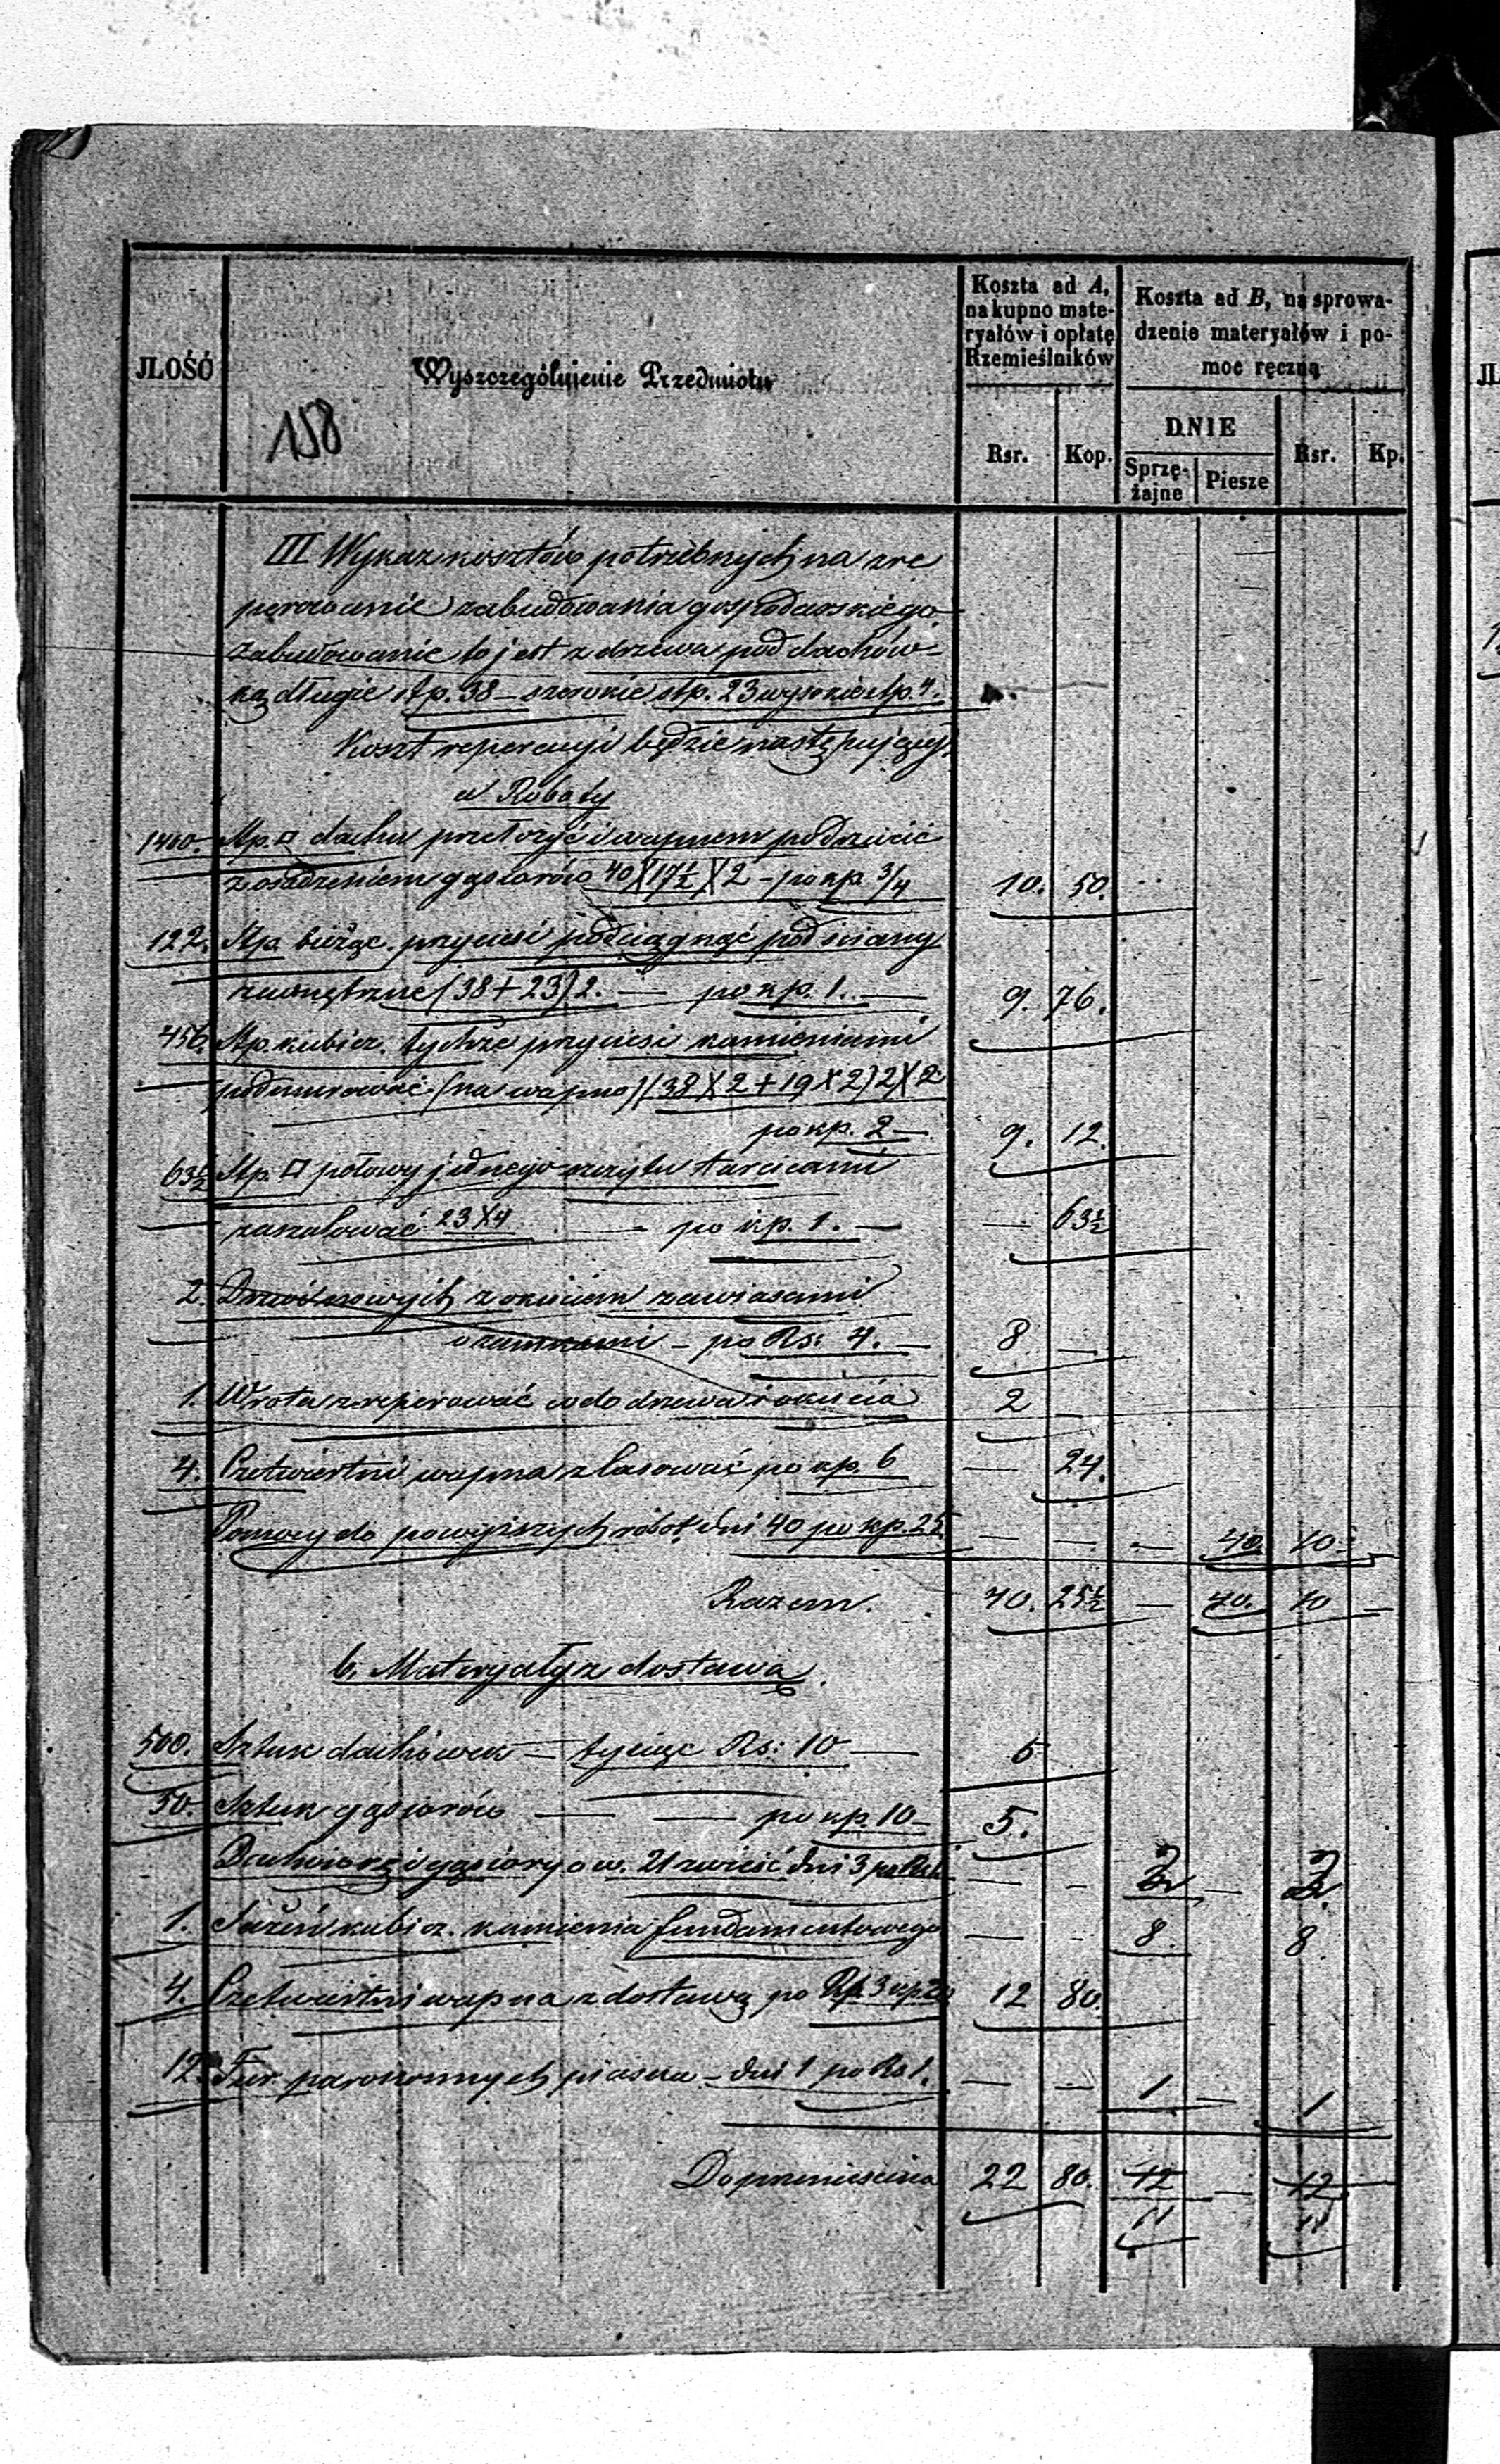 JLOŚĆ
Wyszczególnienie Przedmiotu
Koszta ad A,
na kupno mate-
ryałów i opłatę
Rzemieślników
Koszta ad B, na sprowa-
dzenie materyałów i po-
moc ręczną
DNIE
Rsr. Kop. Sprzę-
żajne Piesze Rsr. Kp.
158
III Wykaz kosztów potrzebnych na zre
perowanie zabudowania gospodarskiego.
Zabudowanie to jest z drzewa pod dachów-
ką długie stp. 38 – szerokie stp. 23 wysokie stp. 7.
Koszt reperacyi będzie następujący
a Roboty
1400. Stp. □ dachu przełożyć i wapnem podrzucić
z osadzeniem gąsiorów 40 X 17½ X 2 – po kp. ¾ 10. 50.
122. Stp. bieżąc. przyciesi podciągnąć pod ściany
zewnętrzne (38 + 23) 2. — po kp. 1. — 9. 76.
456. Stp. kubicz. tychże przyciesi kamieniami
podmurować (na wapno) (38 X 2 + 19 X 2) 2 X 2
po kp. 2 — 9. 12.
63½ Stp. □ połowy jednego szczytu tarcicami
zaszalować 23 X 4 — po kp. 1. — — 63½
2. Drzwi nowych z okuciem zawiasami
– po Rs: 4. — 8 —
1. Wrota zreperować do drzewa i okucia 2 —
4. Czetwiertni wapna zlasować po kp. 6 — 24.
Pomocy do powyższych robót dni 40 po kp. 25 — — — 40. 10 –
Razem. 40. 25½ — 40. 10 —
b. Materyały z dostawą.
500. Sztuk dachówek — tysiąc Rs: 10 — 5
50. Sztuk gąsiorów — — po kp. 10 – 5.
Dachówkę i gąsiory o w. 21 zwieść dni 3 — — 2 — 2
1. Sażeń kubicz. kamienia fundamentowego — — 8 8
4. Czetwiertni wapna z dostawą po Rs. 3 kp. 20 12 80.
12. Fur parokonnych piasku – dni 1 po Rs 1. — — 1 — 1
Do przeniesienia 22 80. 12 — 12
11 11